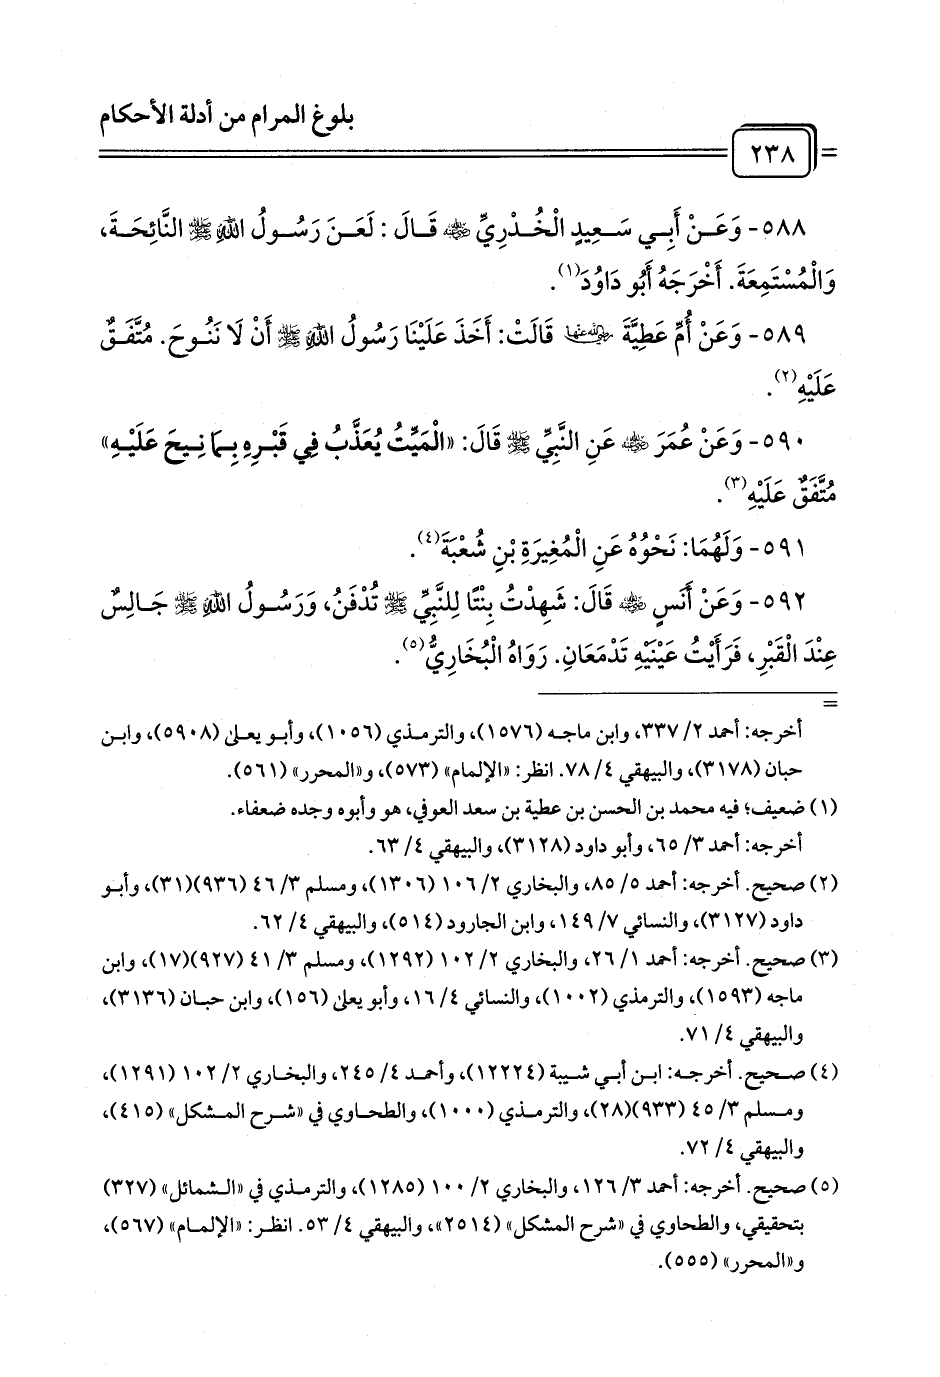 بلوغ المرام من أدلة الأحكام
٢٣٨
٥٨٨- وَعَـنْ أَبِـي سَـعِيدٍ الْخُـدْرِيِّ ﷺ قَـالَ : لَعَـنَ رَسُـولُ اللهِ ﷺ النَّائِحَـةَ،
وَالْمُسْتَمِعَةَ. أَخْرَجَهُ أَبُو دَاوُدَ(١).
٥٨٩- وَعَنْ أُمِّ عَطِيَّةَ رضي الله عنها قَالَتْ: أَخَذَ عَلَيْنَا رَسُولُ اللهِ ﷺ أَنْ لَا نَنُوحَ. مُتَّفَـقٌ
عَلَيْهِ(٢).
٥٩٠- وَعَنْ عُمَرَ ﷺ عَنِ النَّبِيِّ ﷺ قَالَ: «الْمَيِّتُ يُعَذَّبُ فِي قَبْرِهِ بِمَا نِيحَ عَلَيْهِ»
مُتَّفَقٌ عَلَيْهِ(٣).
٥٩١- وَلَهُمَا: نَحْوُهُ عَنِ الْمُغِيرَةِ بْنِ شُعْبَةَ(٤).
٥٩٢- وَعَنْ أَنَسٍ ﷺ قَالَ: شَهِدْتُ بِنْتًا لِلنَّبِيِّ ﷺ تُدْفَنُ، وَرَسُـولُ اللهِ ﷺ جَـالِسٌ
عِنْدَ الْقَبْرِ، فَرَأَيْتُ عَيْنَيْهِ تَدْمَعَانِ. رَوَاهُ الْبُخَارِيُّ(٥).
=
أخرجه: أحمد ٢/ ٣٣٧، وابن ماجه (١٥٧٦)، والترمذي (١٠٥٦)، وأبو يعلى (٥٩٠٨)، وابـن
حبان (٣١٧٨)، والبيهقي ٤/ ٧٨. انظر: «الإلمام» (٥٧٣)، و«المحرر» (٥٦١).
(١) ضعيف؛ فيه محمد بن الحسن بن عطية بن سعد العوفي، هو وأبوه وجده ضعفاء.
أخرجه: أحمد ٣/ ٦٥، وأبو داود (٣١٢٨)، والبيهقي ٤/ ٦٣.
(٢) صحيح. أخرجه: أحمد ٥/ ٨٥، والبخاري ٢/ ١٠٦ (١٣٠٦)، ومسلم ٣/ ٤٦ (٩٣٦)(٣١)، وأبـو
داود (٣١٢٧)، والنسائي ٧/ ١٤٩، وابن الجارود (٥١٤)، والبيهقي ٤/ ٦٢.
(٣) صحيح. أخرجه: أحمد ١/ ٢٦، والبخاري ٢/ ١٠٢ (١٢٩٢)، ومسلم ٣/ ٤١ (٩٢٧)(١٧)، وابن
ماجه (١٥٩٣)، والترمذي (١٠٠٢)، والنسائي ٤/ ١٦، وأبو يعلى (١٥٦)، وابن حبـان (٣١٣٦)،
والبيهقي ٤/ ٧١.
(٤) صحـيح. أخرجـه: ابـن أبـي شـيبة (١٢٢٢٤)، وأحمـد ٤/ ٢٤٥، والبخـاري ٢/ ١٠٢ (١٢٩١)،
ومـسلم ٣/ ٤٥ (٩٣٣)(٢٨)، والترمـذي (١٠٠٠)، والطحـاوي في «شـرح المـشكل» (٤١٥)،
والبيهقي ٤/ ٧٢.
(٥) صحيح. أخرجه: أحمد ٣/ ١٢٦، والبخاري ٢/ ١٠٠ (١٢٨٥)، والترمذي في «الـشمائل» (٣٢٧)
بتحقيقي، والطحاوي في «شرح المشكل» (٢٥١٤»، والبيهقي ٤/ ٥٣. انظـر: «الإلمـام» (٥٦٧)،
و«المحرر» (٥٥٥).